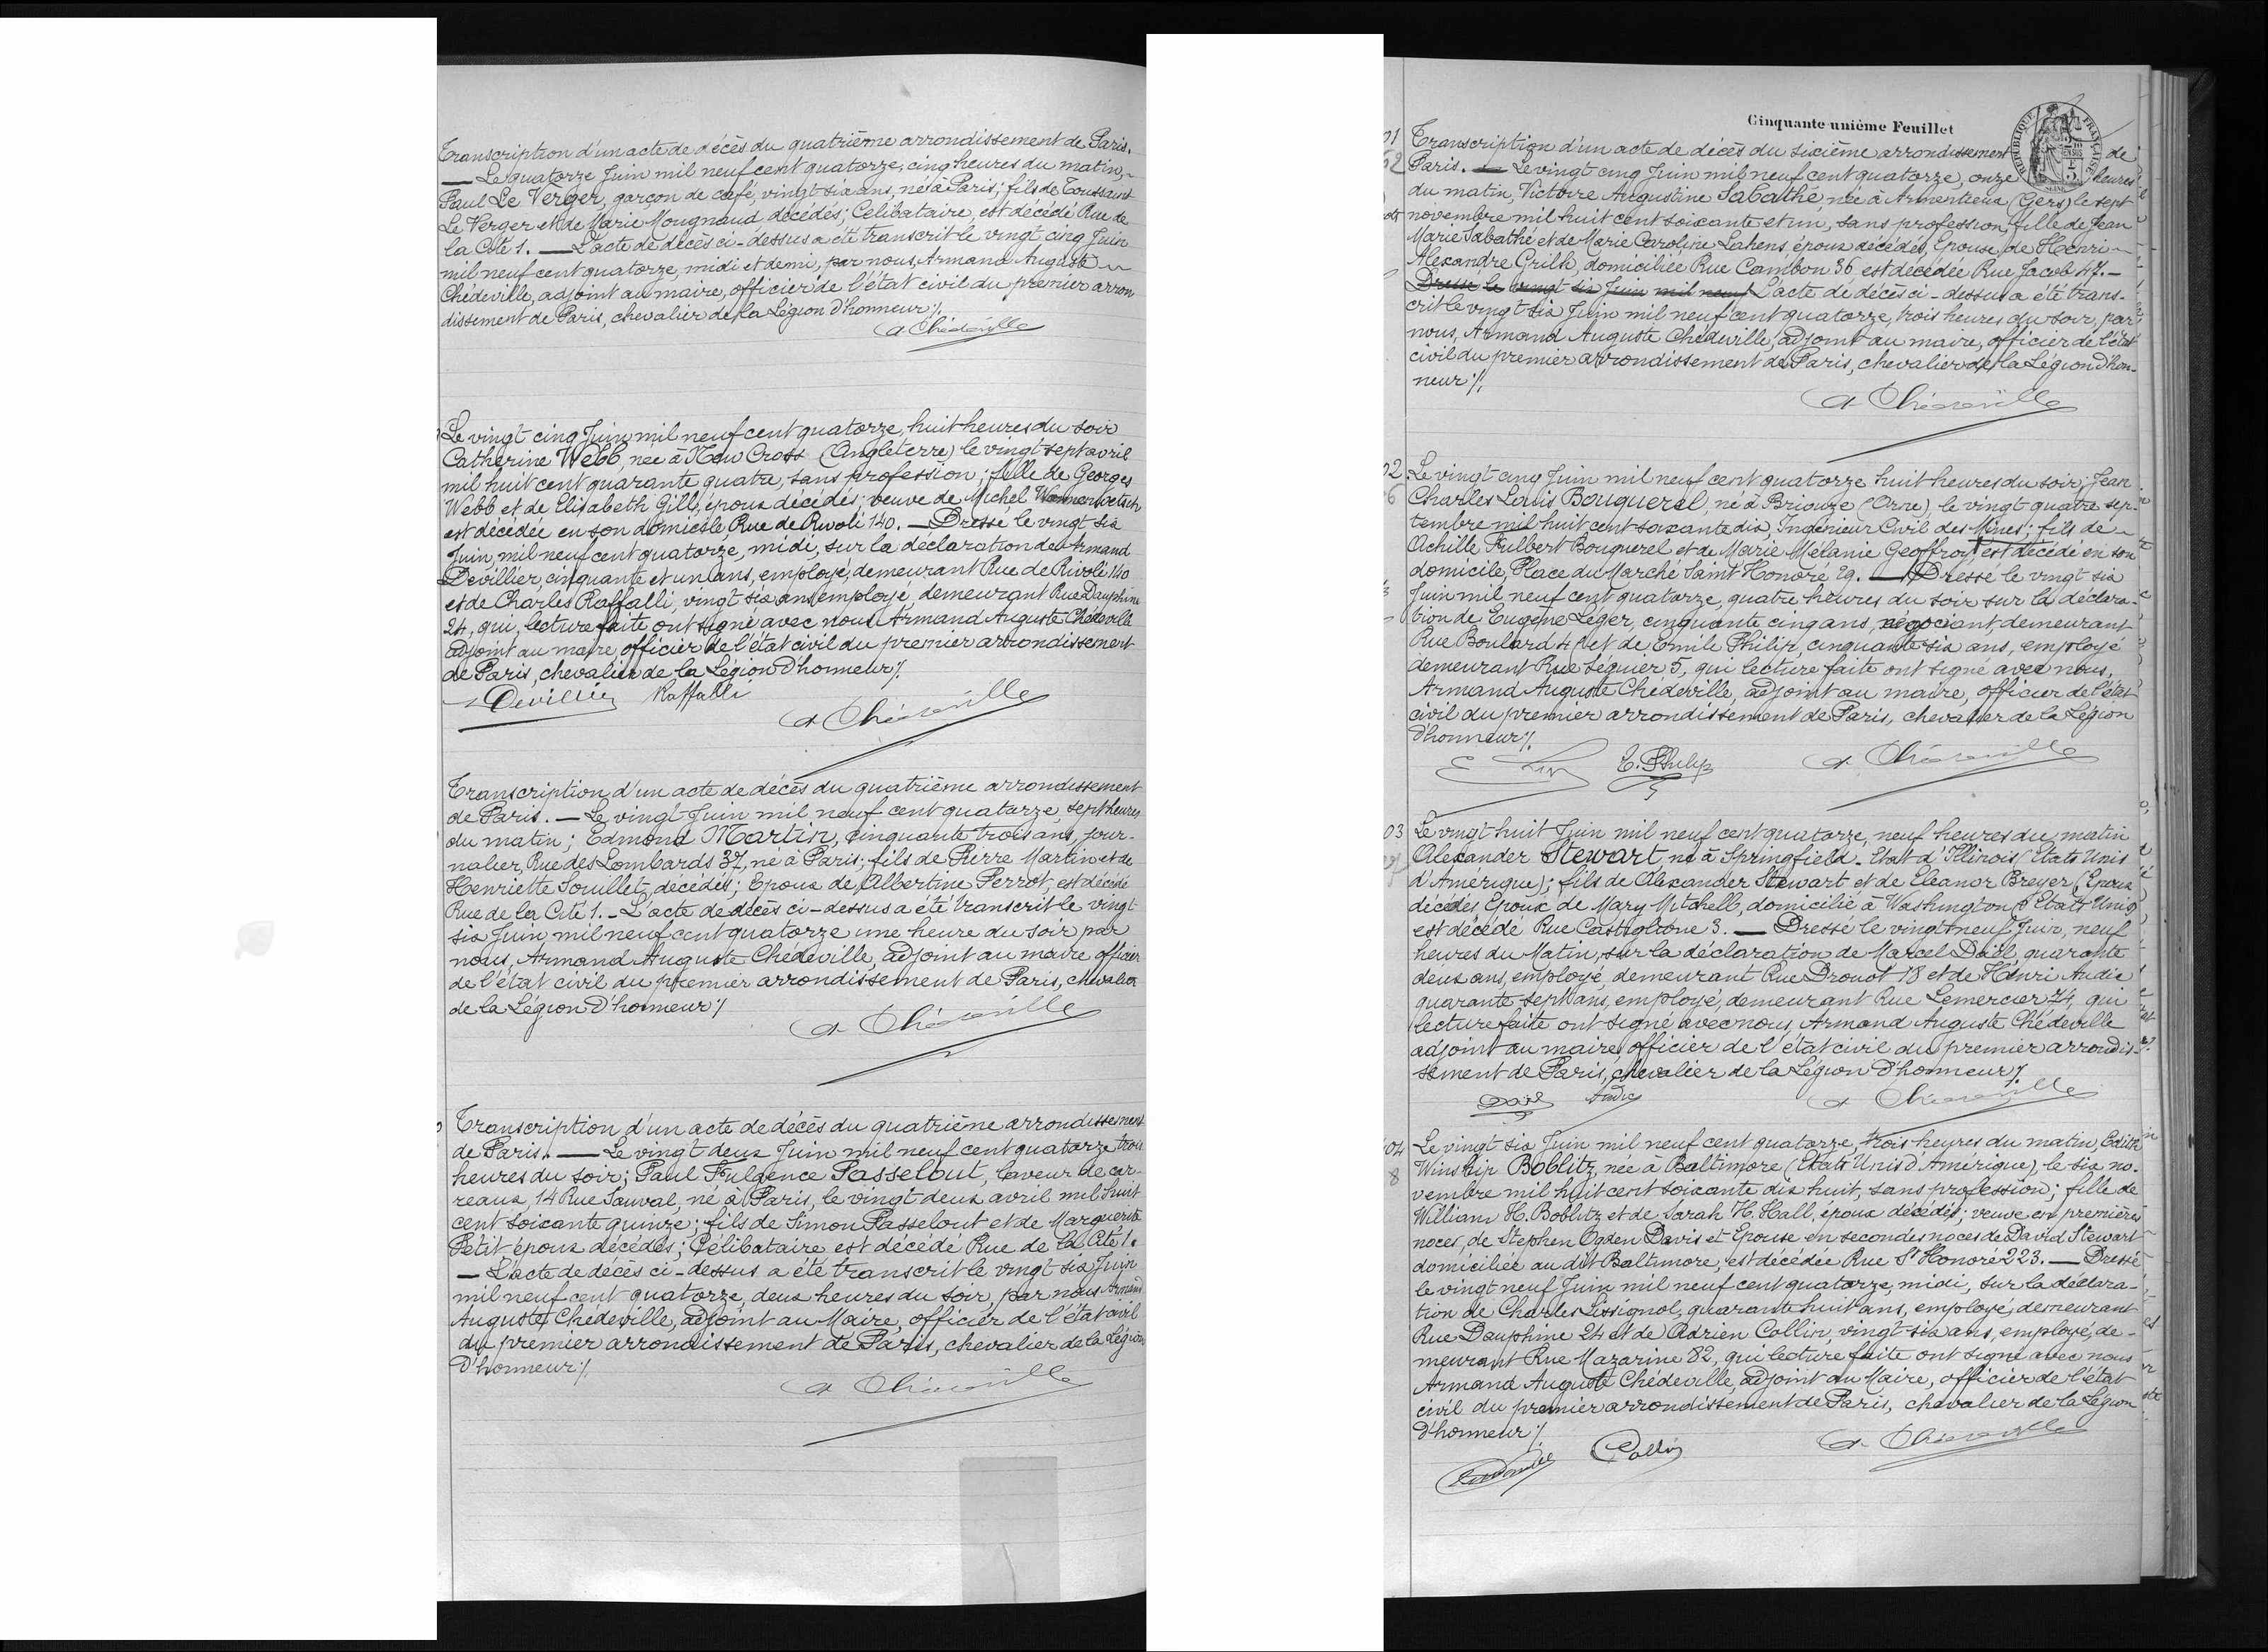 Transcription d'un acte de décès du quatrième arrondissement de Paris.
— Le quatorze Juin mil neuf cent quatorze, cinq heures du matin,
Paul Le Verger, garçon de café, vingt six ans, né à Paris; fils de Toussaint
Le Verger et de Marie Mougnaud décédés; Célibataire, est décédé Rue de
la Cité 1. — L'acte de décès ci-dessus a été transcrit le vingt cinq Juin
mil neuf cent quatorze, midi et demi, par nous, Armand Auguste
Chédeville, adjoint au maire, officier de l'état civil du premier arron
dissement de Paris, chevalier de la Légion d'honneur ./.
A Chédeville
Le vingt cinq Juin mil neuf cent quatorze, huit heures du soir
Catherine Webb, née à New Cross (Angleterre) le vingt sept avril
mil huit cent quarante quatre, sans profession; fille de Georges
Webb et de Elisabeth Gills, époux décédés; veuve de Michel
est décédée en son domicile, Rue de Rivoli 140. — Dressé le vingt six
Juin, mil neuf cent quatorze, midi, sur la déclaration de Armand
Devillier, cinquante et un ans, employé, demeurant Rue de Rivoli 140
et de Charles Raffalli, vingt six ans, employé, demeurant Rue Dauphine
24, qui, lecture faite ont signé avec nous Armand Auguste Chédeville
adjoint au maire, officier de l'état civil du premier arrondissement
de Paris, chevalier de la Légion d'honneur ./.
Devillier Raffalli
A Chédeville
Transcription d'un acte de décès du quatrième arrondissement
de Paris. — Le vingt Juin mil neuf cent quatorze, sept heures
du matin; Edmond Martin, cinquante trois ans, jour-
nalier, Rue des Lombards 37, né à Paris; fils de Pierre Martin et de
Henriette Souillet, décédés; Epoux de Albertine Perrot, est décédé
Rue de la Cité 1. - L'acte de décès ci-dessus a été transcrit le vingt
six Juin mil neuf cent quatorze une heure du soir par
nous, Armand Auguste Chédeville, adjoint au maire officier
de l'état civil du premier arrondissement de Paris, chevalier
de la Légion d'honneur ./.
A Chédeville
Transcription d'un acte de décès du quatrième arrondissement
de Paris. — Le vingt deux Juin mil neuf cent quatorze trois
heures du soir; Paul Fulgence Passelout, laveur de car-
reaux, 14 Rue Sauval, né à Paris, le vingt deux avril mil huit
cent soixante quinze; fils de Simon Passelout et de Marguerite
Petit, époux décédés; Célibataire est décédé Rue de la Cité 1.
— L'acte de décès ci-dessus a été transcrit le vingt six Juin
mil neuf cent quatorze, deux heures du soir, par nous Armand
Auguste Chédeville, adjoint au Maire, officier de l'état civil
du premier arrondissement de Paris, chevalier de la Légion
d'honneur ./.
A Chédeville
Cinquante unième Feuillet
RÉPUBLIQUE FRANÇAISE
01 Transcription d'un acte de décès du sixième arrondissement de
52 Paris. — Le vingt cinq Juin mil neuf cent quatorze, onze heures
du matin, Victoire Augustine Sabathé, née à Armentieux (Gers) le sept
novembre mil huit cent soixante et un, sans profession, fille de Jean
Marie Sabathé et de Marie Caroline Lahens, époux décédés, Epouse de Henri
Alexandre Grilh, domiciliée Rue Cambon 36, est décédée Rue Jacob 47. —
Dressé le vingt six Juin mil neuf L'acte de décès ci-dessus a été trans-
crit le vingt six Juin mil neuf cent quatorze, trois heures du soir, par
nous, Armand Auguste Chédeville, adjoint au maire, officier de l'état
civil du premier arrondissement de Paris, chevalier de la Légion d'hon-
neur ./.
A Chédeville
02 Le vingt cinq Juin mil neuf cent quatorze huit heures du soir, Jean
6 Charles Louis Bouquerel, né à Briouze (Orne), le vingt quatre sep-
tembre mil huit cent soixante dix, Ingénieur Civil des Mines; fils de
Achille Fulbert Bouquerel et de Marie Mélanie Geoffroy, est décédé en son
domicile, Place du Marché Saint Honoré 29. — Dressé le vingt six
Juin mil neuf cent quatorze, quatre heures du soir sur la déclara-
tion de Eugène Léger, cinquante cinq ans, négociant, demeurant
Rue Boulard 4 et de Emile Philip, cinquante six ans, employé
demeurant Rue Séguier 5, qui lecture faite ont signé avec nous,
Armand Auguste Chédeville, adjoint au maire, officier de l'état
civil du premier arrondissement de Paris, chevalier de la Légion
d'honneur ./.
E. Philip A Chédeville
03 Le vingt huit Juin mil neuf cent quatorze, neuf heures du matin
Alexander Stewart, né à Springfield - Etat d'Illinois (Etats Unis
d'Amérique); fils de Alexander Stewart et de Eleanor Breyer, (Epoux
décédés Epoux de Mary Mitchell, domicilié à Washington (Etats Unis)
est décédé Rue Castiglione 3. — Dressé le vingt neuf Juin, neuf
heures du Matin, sur la déclaration de Marcel Daël, quarante
deux ans, employé, demeurant Rue Drouot 18 et de Henri Audic
quarante sept ans, employé, demeurant Rue Lemercier 74, qui
lecture faite ont signé avec nous, Armand Auguste Chédeville
adjoint au maire, officier de l'état civil du premier arrondis-
sement de Paris, chevalier de la Légion d'honneur ./.
Daël Audic A Chédeville
04 Le vingt six Juin mil neuf cent quatorze, trois heures du matin, Edith
8 Winship Boblitz, née à Baltimore (Etats Unis d'Amérique), le six no-
vembre mil huit cent soixante dix huit, sans profession; fille de
William H. Boblitz et de Sarah H. Hall, époux décédés; veuve en premières
noces, de Stephen Ogden Davis et Epouse en secondes noces de David Stewart
domiciliée au dit Baltimore, est décédée Rue St Honoré 223. — Dressé
le vingt neuf Juin mil neuf cent quatorze, midi, sur la déclara-
tion de Charles Lissignol, quarante huit ans, employé, demeurant
Rue Dauphine 24 et de Adrien Collin, vingt six ans, employé, de-
meurant Rue Mazarine 82, qui lecture faite ont signé avec nous
Armand Auguste Chédeville, adjoint au Maire, officier de l'état
civil du premier arrondissement de Paris, chevalier de la Légion
d'honneur ./.
Collin A Chédeville